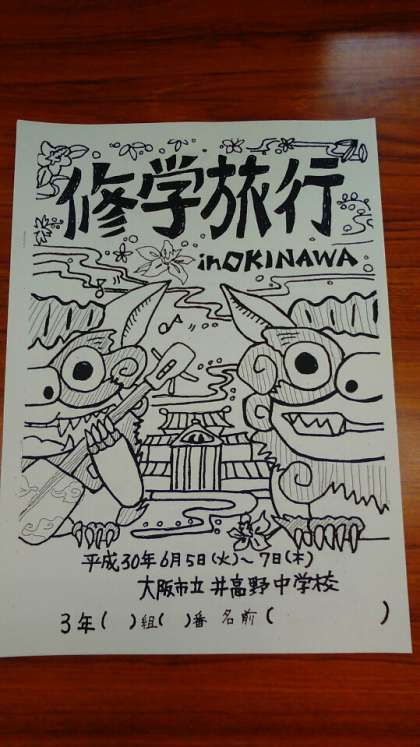 修学旅行
in OKINAWA
平成30年6月5日(火)～7日(木)
大阪市立 井高野中学校
3年( )組( )番 名前( )